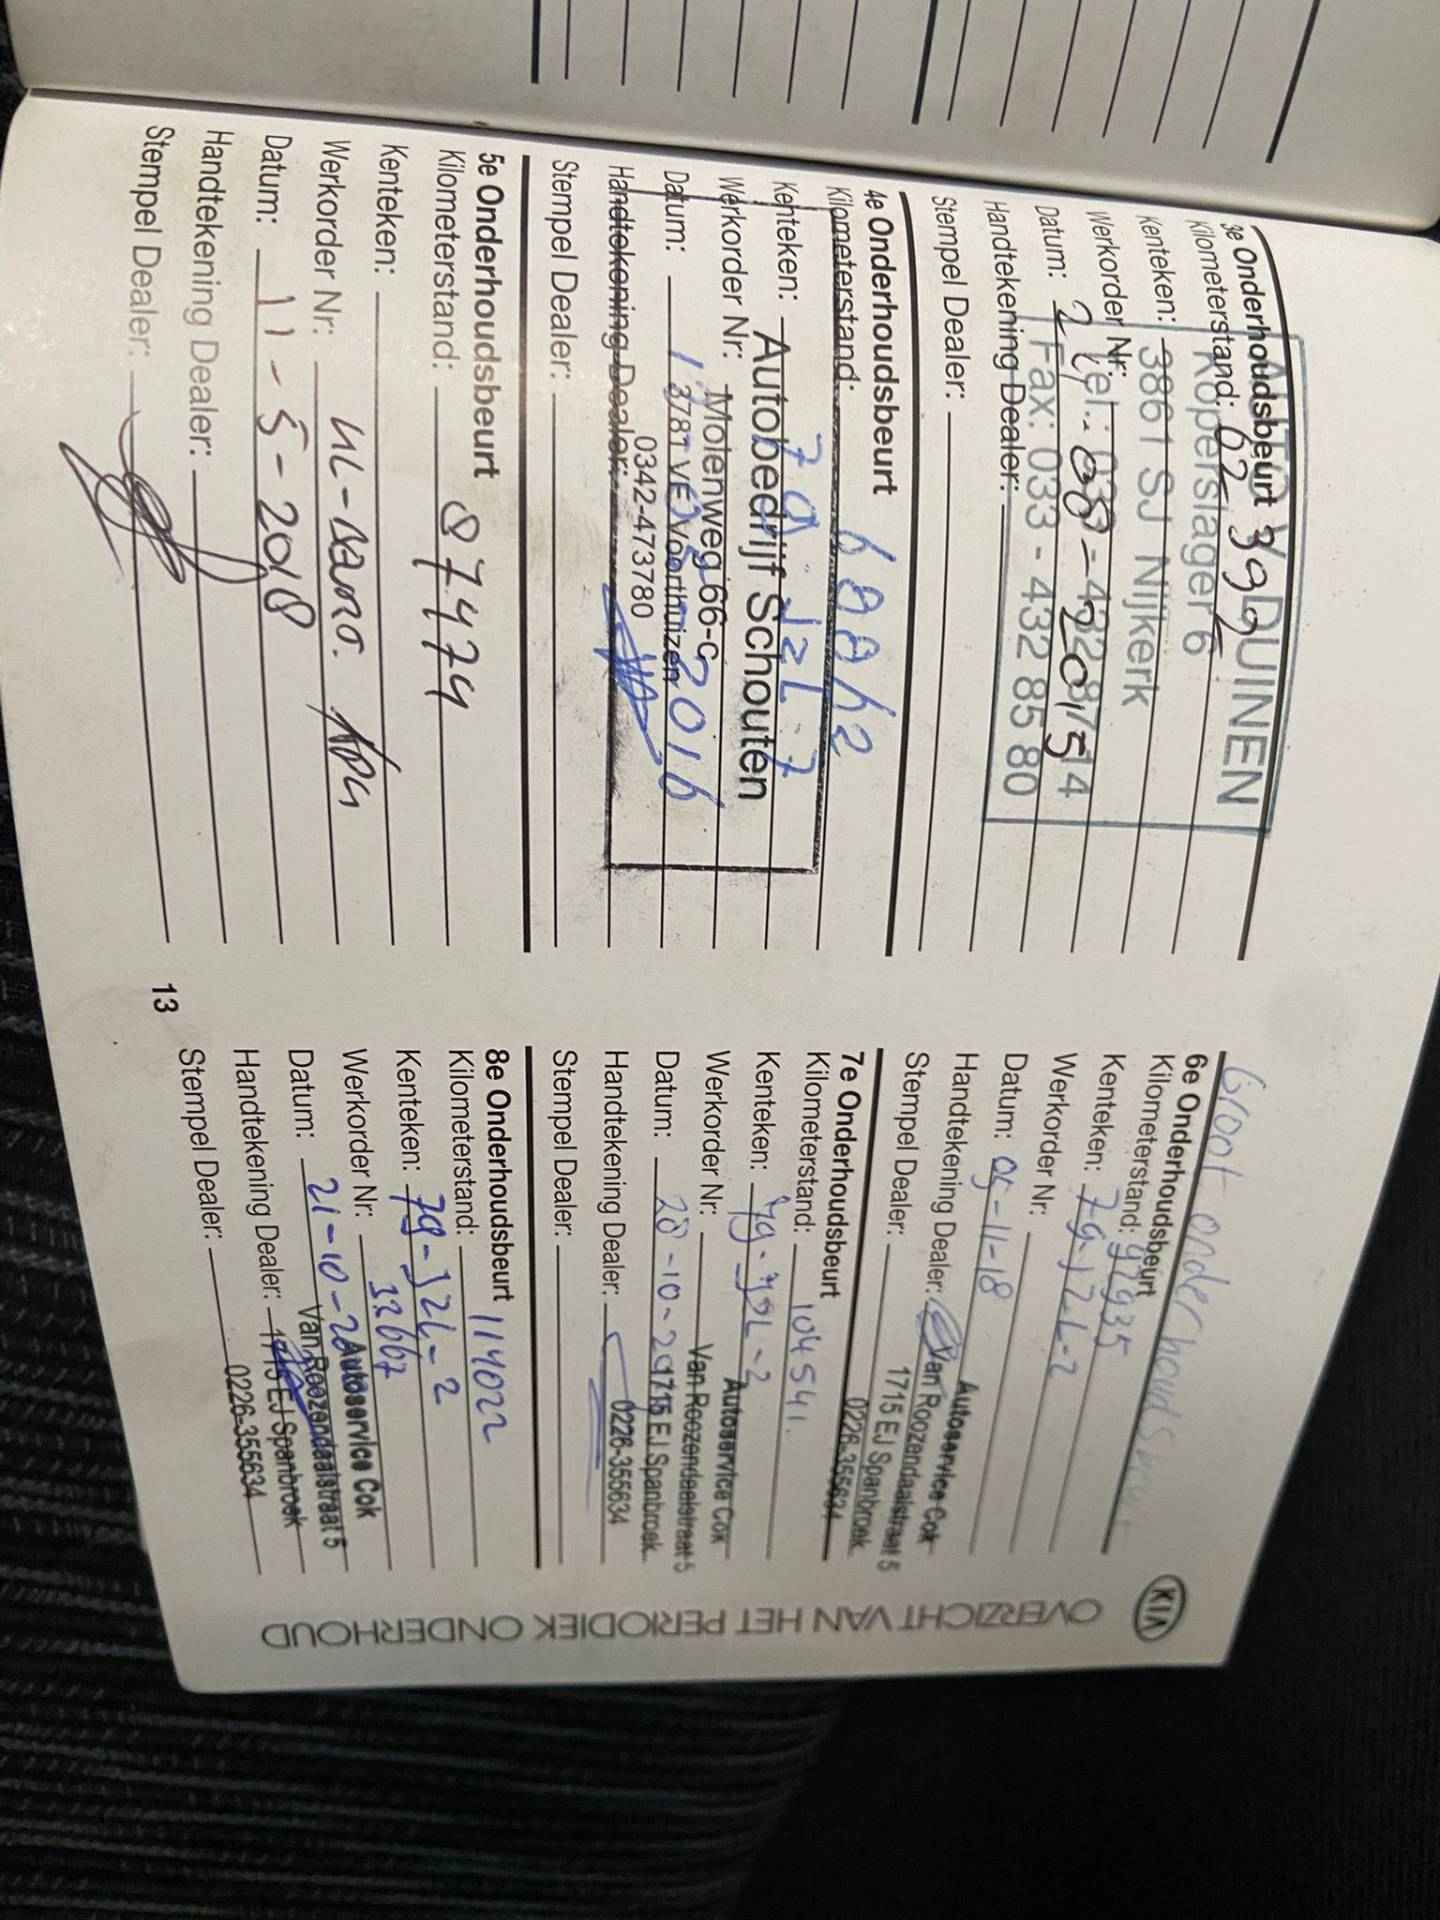 3e Onderhoudsbeurt
Kilometerstand: 62399
DUINEN
Roperslager 6
Kenteken: 3861 SJ Nijkerk
Werkorder Nr:
Datum:
Fax: 033 - 432 85 80
Handtekening Dealer:
Stempel Dealer:
4e Onderhoudsbeurt
Kilometerstand:
Kenteken:
Autobedrijf Schouten
Werkorder Nr: Molenweg 66-c
Datum: 2016
3781 VE Voorthuizen
0342-473780
Handtekening Dealer:
Stempel Dealer:
5e Onderhoudsbeurt
Kilometerstand: 87474
Kenteken:
Werkorder Nr:
Datum: 11-5-2018
Handtekening Dealer:
Stempel Dealer:
13
Groot onderhoud
6e Onderhoudsbeurt
Kilometerstand: 92935
Kenteken: 79-JZL-2
Werkorder Nr:
Datum: 05-11-18
Handtekening Dealer:
Autoservice Cok
Stempel Dealer:
Van Roozendaalstraat 5
1715 EJ Spanbroek
0226-355634
7e Onderhoudsbeurt
Kilometerstand: 104541.
Kenteken: 79-JZL-2
Werkorder Nr:
Autoservice Cok
Van Roozendaalstraat 5
Datum: 28-10-
1715 EJ Spanbroek
0226-355634
Handtekening Dealer:
Stempel Dealer:
8e Onderhoudsbeurt
Kilometerstand: 114022
Kenteken: 79-JZL-2
Werkorder Nr: 32667
Autoservice Cok
Datum: 21-10-20
Van Roozendaalstraat 5
Handtekening Dealer:
1715 EJ Spanbroek
Stempel Dealer:
0226-355634
KIA
OVERZICHT VAN HET PERIODIEK ONDERHOUD